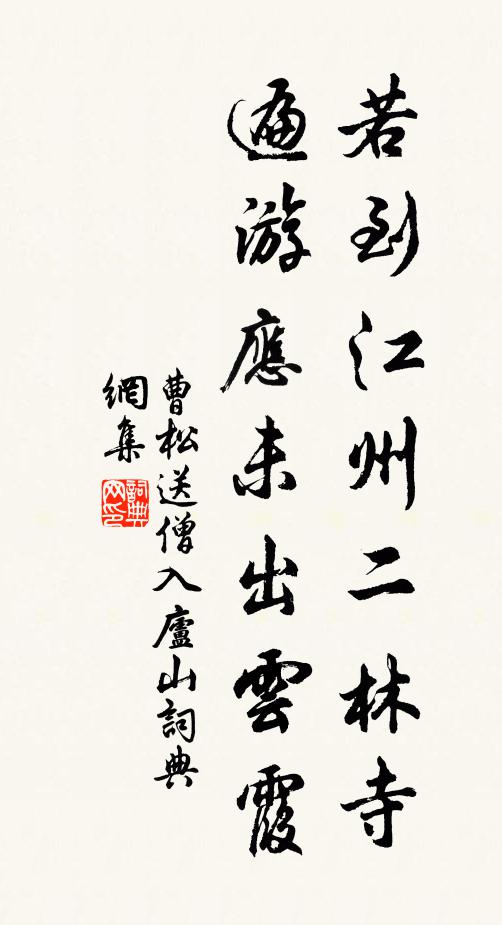 若到江州二林寺
遍游應未出雲霞
曹松送僧入廬山詞典
網集
詞典网印